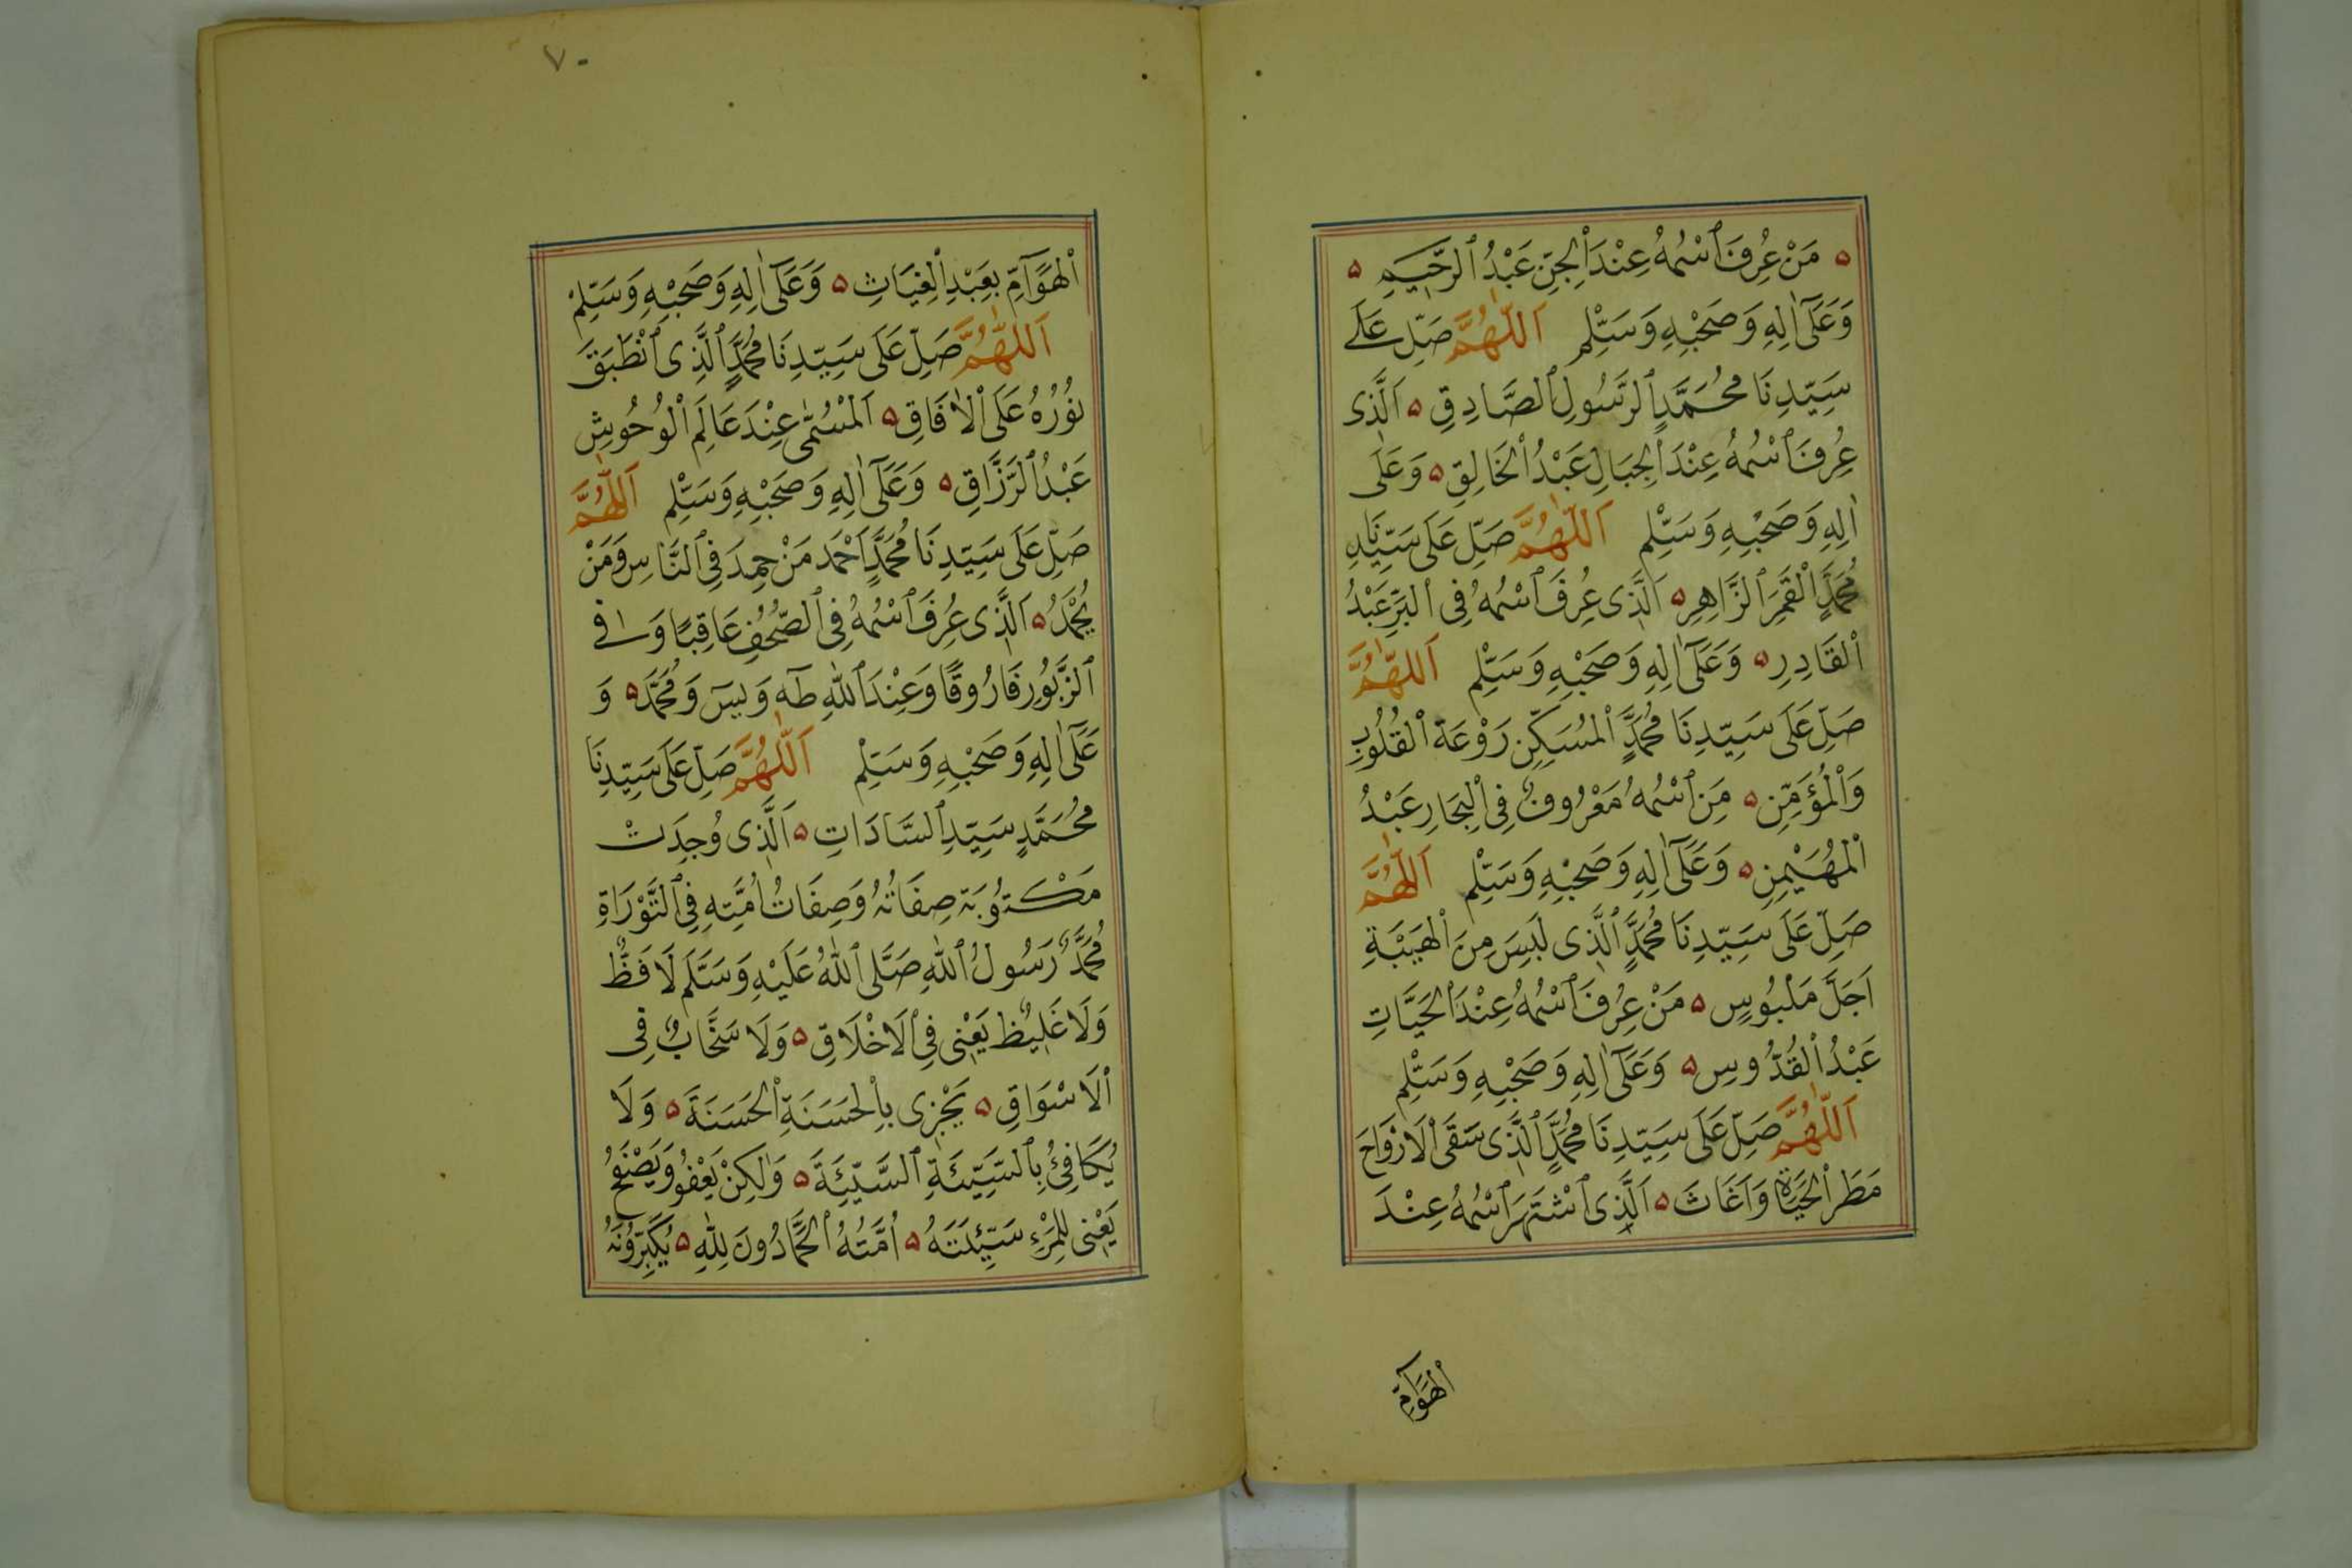 مَنْ عُرِفَ ٱسْمُهُ عِنْدَ ٱلْجِنِّ عَبْدُ ٱلرَّحِيمِ
وَعَلَىٰ اٰلِهِ وَصَحْبِهِ وَسَلِّمْ اَللّٰهُمَّ صَلِّ عَلَى
سَيِّدِنَا مُحَمَّدٍ ٱلرَّسُولِ ٱلصَّادِقِ اَلَّذِى
عُرِفَ ٱسْمُهُ عِنْدَ ٱلْجِبَالِ عَبْدُ ٱلْخَالِقِ وَعَلَى
اٰلِهِ وَصَحْبِهِ وَسَلِّمْ اَللّٰهُمَّ صَلِّ عَلَى سَيِّدِنَا
مُحَمَّدٍ ٱلْقَمَرِ ٱلزَّاهِرِ اَلَّذِى عُرِفَ ٱسْمُهُ فِى ٱلْبَرِّ عَبْدُ
ٱلْقَادِرِ وَعَلَىٰ اٰلِهِ وَصَحْبِهِ وَسَلِّمْ اَللّٰهُمَّ
صَلِّ عَلَى سَيِّدِنَا مُحَمَّدٍ ٱلْمُسَكِّنِ رَوْعَةَ ٱلْقُلُوبِ
وَٱلْمُؤَمِّنِ مَنِ ٱسْمُهُ مَعْرُوفٌ فِى ٱلْبِحَارِ عَبْدُ
ٱلْمُهَيْمِنِ وَعَلَىٰ اٰلِهِ وَصَحْبِهِ وَسَلِّمْ اَللّٰهُمَّ
صَلِّ عَلَى سَيِّدِنَا مُحَمَّدٍ ٱلَّذِى لَبِسَ مِنَ ٱلْهَيْبَةِ
اَجَلَّ مَلْبُوسٍ مَنْ عُرِفَ ٱسْمُهُ عِنْدَ ٱلْحَيَّاتِ
عَبْدُ ٱلْقُدُّوسِ وَعَلَىٰ اٰلِهِ وَصَحْبِهِ وَسَلِّمْ
اَللّٰهُمَّ صَلِّ عَلَى سَيِّدِنَا مُحَمَّدٍ ٱلَّذِى سَقَى ٱلْاَرْوَاحَ
مَطَرَ ٱلْحَيَاةِ وَاَغَاثَ اَلَّذِى ٱشْتَهَرَ ٱسْمُهُ عِنْدَ
ٱلْهَوَآمِّ
٧٠
ٱلْهَوَآمِّ بِعَبْدِ ٱلْغِيَاثِ وَعَلَىٰ اٰلِهِ وَصَحْبِهِ وَسَلِّمْ
اَللّٰهُمَّ صَلِّ عَلَى سَيِّدِنَا مُحَمَّدٍ ٱلَّذِى ٱنْطَبَقَ
نُورُهُ عَلَى ٱلْاٰفَاقِ اَلْمُسَمّٰى عِنْدَ عَالَمِ ٱلْوُحُوشِ
عَبْدُ ٱلرَّزَّاقِ وَعَلَىٰ اٰلِهِ وَصَحْبِهِ وَسَلِّمْ اَللّٰهُمَّ
صَلِّ عَلَى سَيِّدِنَا مُحَمَّدٍ اَحْمَدَ مَنْ حَمِدَ فِى ٱلنَّاسِ وَمَنْ
يُحْمَدُ اَلَّذِى عُرِفَ ٱسْمُهُ فِى ٱلصُّحُفِ عَاقِبًا وَ فِى
ٱلزَّبُورِ فَارُوقًا وَعِنْدَ ٱللّٰهِ طٰهٰ وَيٰسٓ وَمُحَمَّدَ وَ
عَلَىٰ اٰلِهِ وَصَحْبِهِ وَسَلِّمْ اَللّٰهُمَّ صَلِّ عَلَى سَيِّدِنَا
مُحَمَّدٍ سَيِّدِ ٱلسَّادَاتِ اَلَّذِى وُجِدَتْ
مَكْتُوبَةً صِفَاتُهُ وَصِفَاتُ اُمَّتِهِ فِى ٱلتَّوْرَاةِ
مُحَمَّدٌ رَسُولُ ٱللّٰهِ صَلَّى ٱللّٰهُ عَلَيْهِ وَسَلَّمَ لَا فَظٌّ
وَلَا غَلِيظٌ يَعْنِى فِى ٱلْاَخْلَاقِ وَلَا سَخَّابٌ فِى
ٱلْاَسْوَاقِ يَجْزِى بِٱلْحَسَنَةِ ٱلْحَسَنَةَ وَلَا
يُكَافِئُ بِٱلسَّيِّئَةِ ٱلسَّيِّئَةَ وَلٰكِنْ يَعْفُو وَيَصْفَحُ
يَعْنِى لِلْمَرْءِ سَيِّئَتَهُ اُمَّتُهُ ٱلْحَمَّادُونَ لِلّٰهِ يُكَبِّرُونَهُ